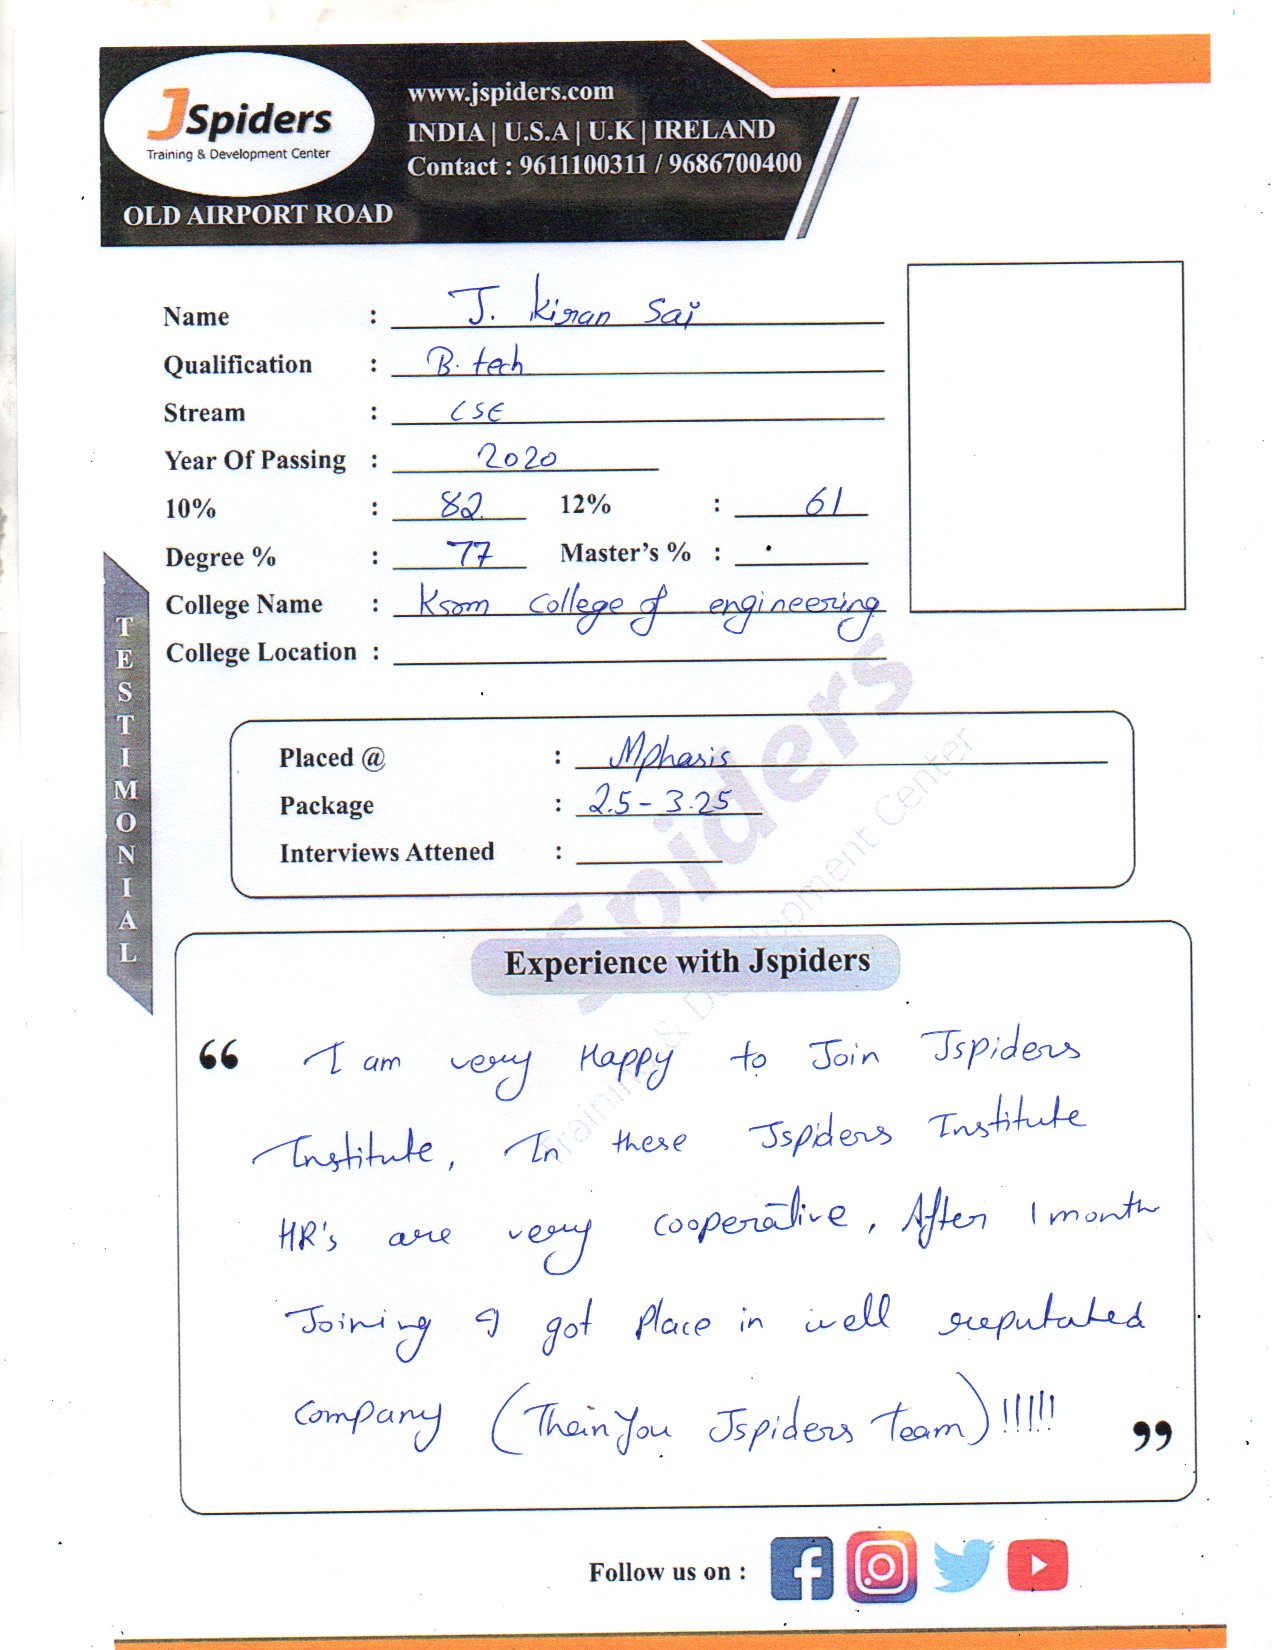 JSpiders
Training & Development Center
OLD AIRPORT ROAD
www.jspiders.com
INDIA | U.S.A | U.K | IRELAND
Contact : 9611100311 / 9686700400
Name : J. Kiran Sai
Qualification : B.tech
Stream : CSE
Year Of Passing : 2020
10% : 82 12% : 61
Degree % : 77 Master's % :
College Name : Ksrm College of engineering
College Location :
TESTIMONIAL
Placed @ : Mphasis
Package : 2.5 - 3.25
Interviews Attened :
Spiders
Training & Development Center
Experience with Jspiders
“ I am very Happy to Join Jspiders
Institute, In these Jspiders Institute
HR's are very cooperative, After 1 month
Joining I got Place in well reputated
company (ThainYou Jspiders Team) !!!!! ”
Follow us on :